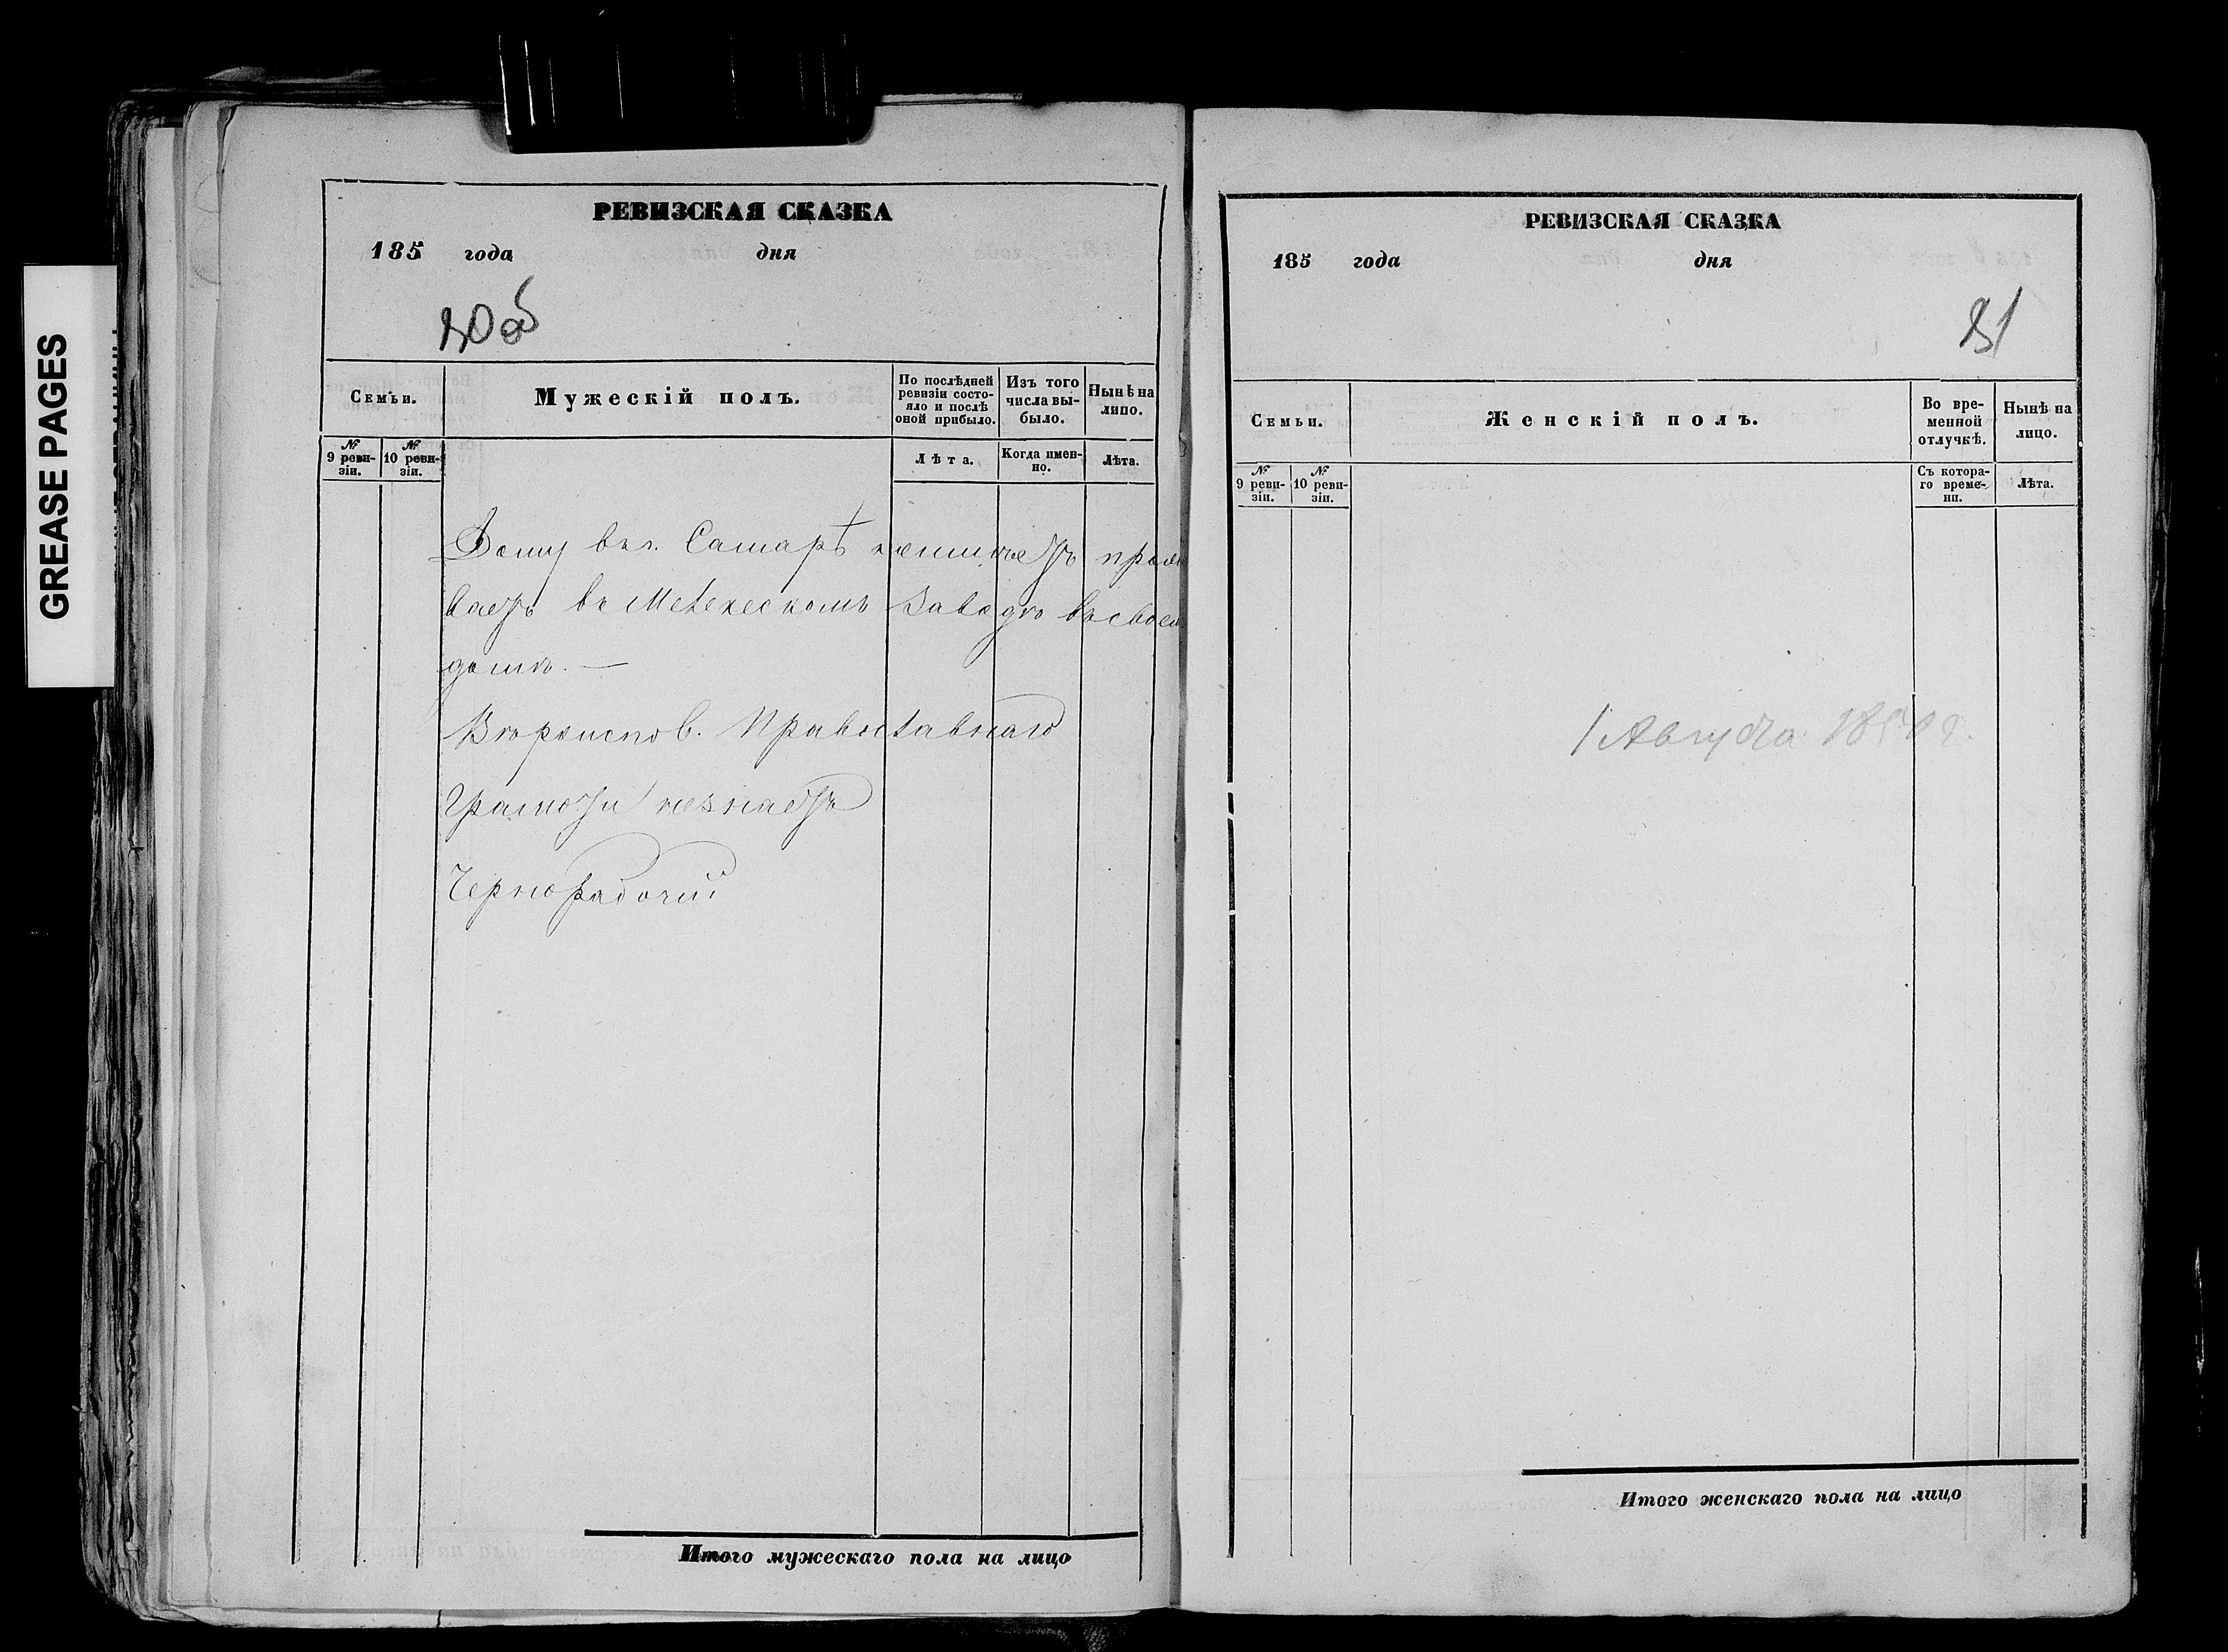 GREASE PAGES
РЕВИЗСКАЯ СКАЗКА
185 года дня
30об
Семьи.
Мужескій полъ.
По послѣдней ревизіи состояло и послѣ оной прибыло.
Изъ того числа выбыло.
Нынѣ на лицо.
№ 9 ревизіи.
№ 10 ревизіи.
Лѣта.
Когда именно.
Лѣта.
Дому въ г. Самарѣ неимѣетъ прожи
ваетъ въ заводѣ въ своемъ
домѣ. —
Вѣроиспов. Православнаго
Грамоты незнаетъ
Чернорабочій
Итого мужескаго пола на лицо
РЕВИЗСКАЯ СКАЗКА
185 года дня
31
Семьи.
Женскій полъ.
Во временной отлучкѣ.
Нынѣ на лицо.
№ 9 ревизіи.
№ 10 ревизіи.
Съ котораго времени.
Лѣта.
1 Августа
Итого женскаго пола на лицо